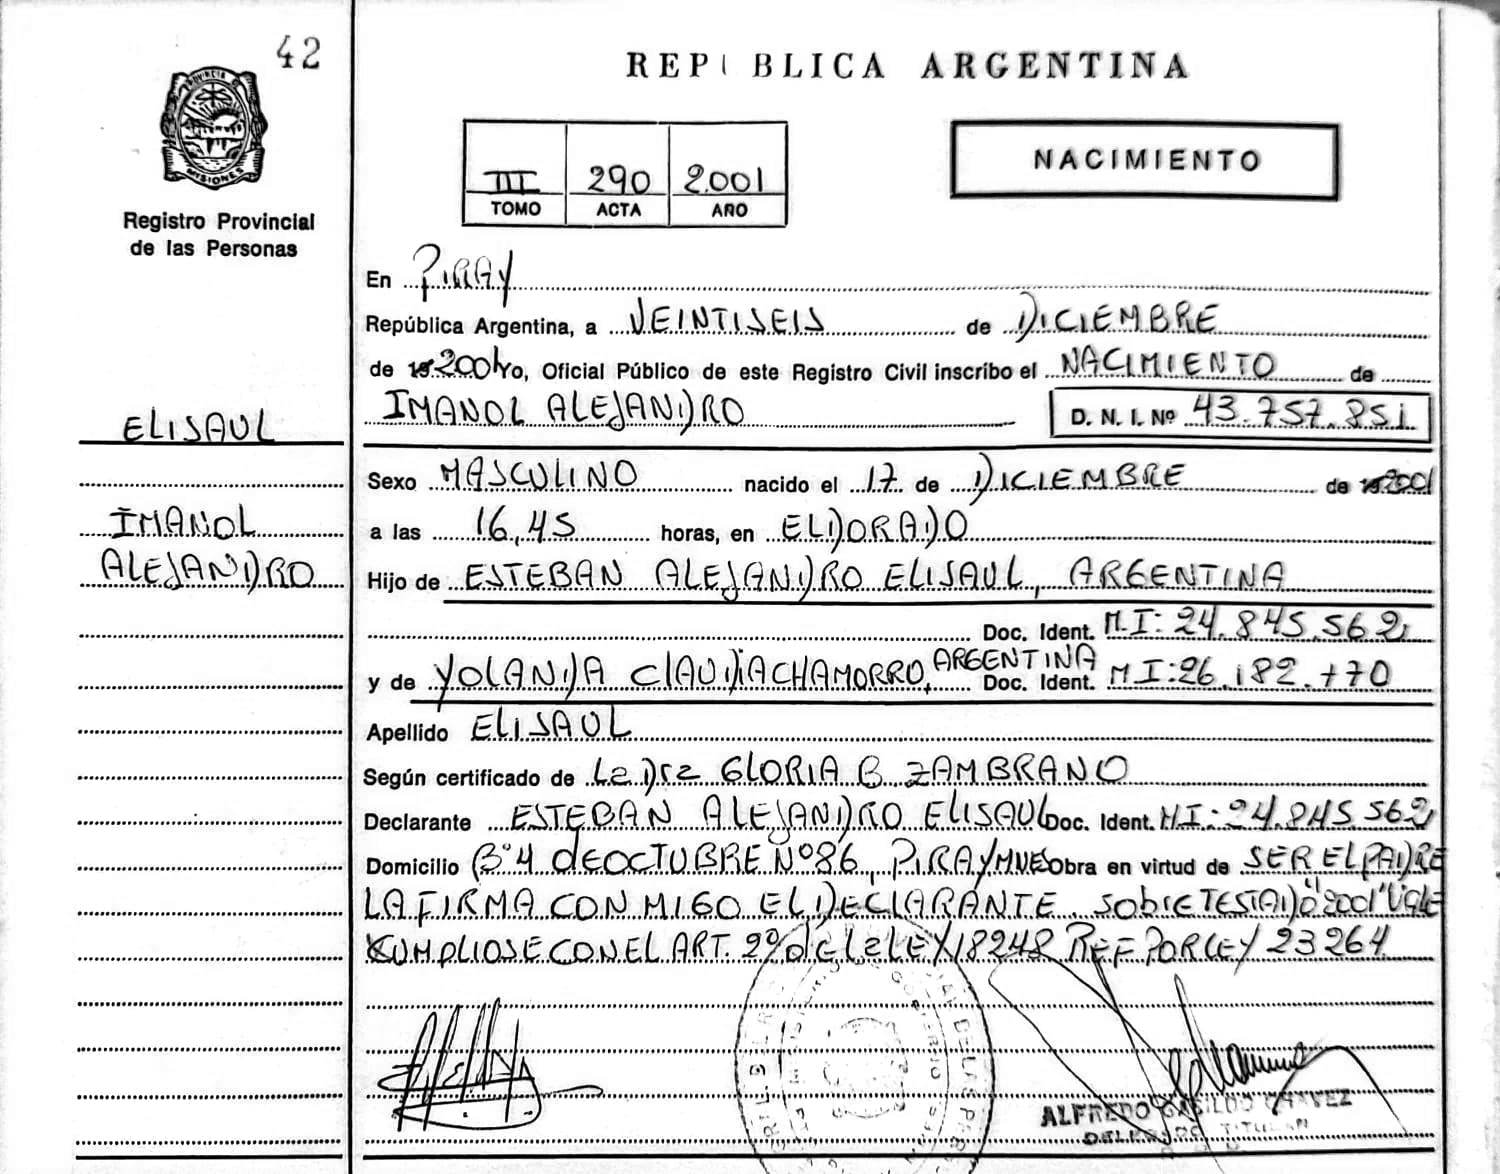 42
PROVINCIA
MISIONES
Registro Provincial
de las Personas
REPUBLICA ARGENTINA
III 290 2.001
TOMO ACTA AÑO
NACIMIENTO
En PIRAY
República Argentina, a VEINTISEIS de DICIEMBRE
de 2001 yo, Oficial Público de este Registro Civil inscribo el NACIMIENTO de
IMANOL ALEJANDRO D. N. I. Nº 43.757.851
ELISAUL
IMANOL
ALEJANDRO
Sexo MASCULINO nacido el 17 de DICIEMBRE de 2001
a las 16,45 horas, en ELDORADO
Hijo de ESTEBAN ALEJANDRO ELISAUL, ARGENTINA
Doc. Ident. M.I: 24.845.562
y de YOLANDA CLAUDIA CHAMORRO, ARGENTINA Doc. Ident. M I: 26.182.770
Apellido ELISAUL
Según certificado de La Dra GLORIA B. ZAMBRANO
Declarante ESTEBAN ALEJANDRO ELISAUL Doc. Ident. MI: 24.845.562
Domicilio Bº 4 DE OCTUBRE Nº 86, PIRAY MNES Obra en virtud de SER EL PADRE
LA FIRMA CONMIGO EL DECLARANTE. SOBRE TESTADO "2001" VALE
CUMPLIOSE CON EL ART. 2º de la LEY 18248 REF POR LEY 23264
ALFREDO CASILDO CHAVEZ
DELEGADO TITULAR